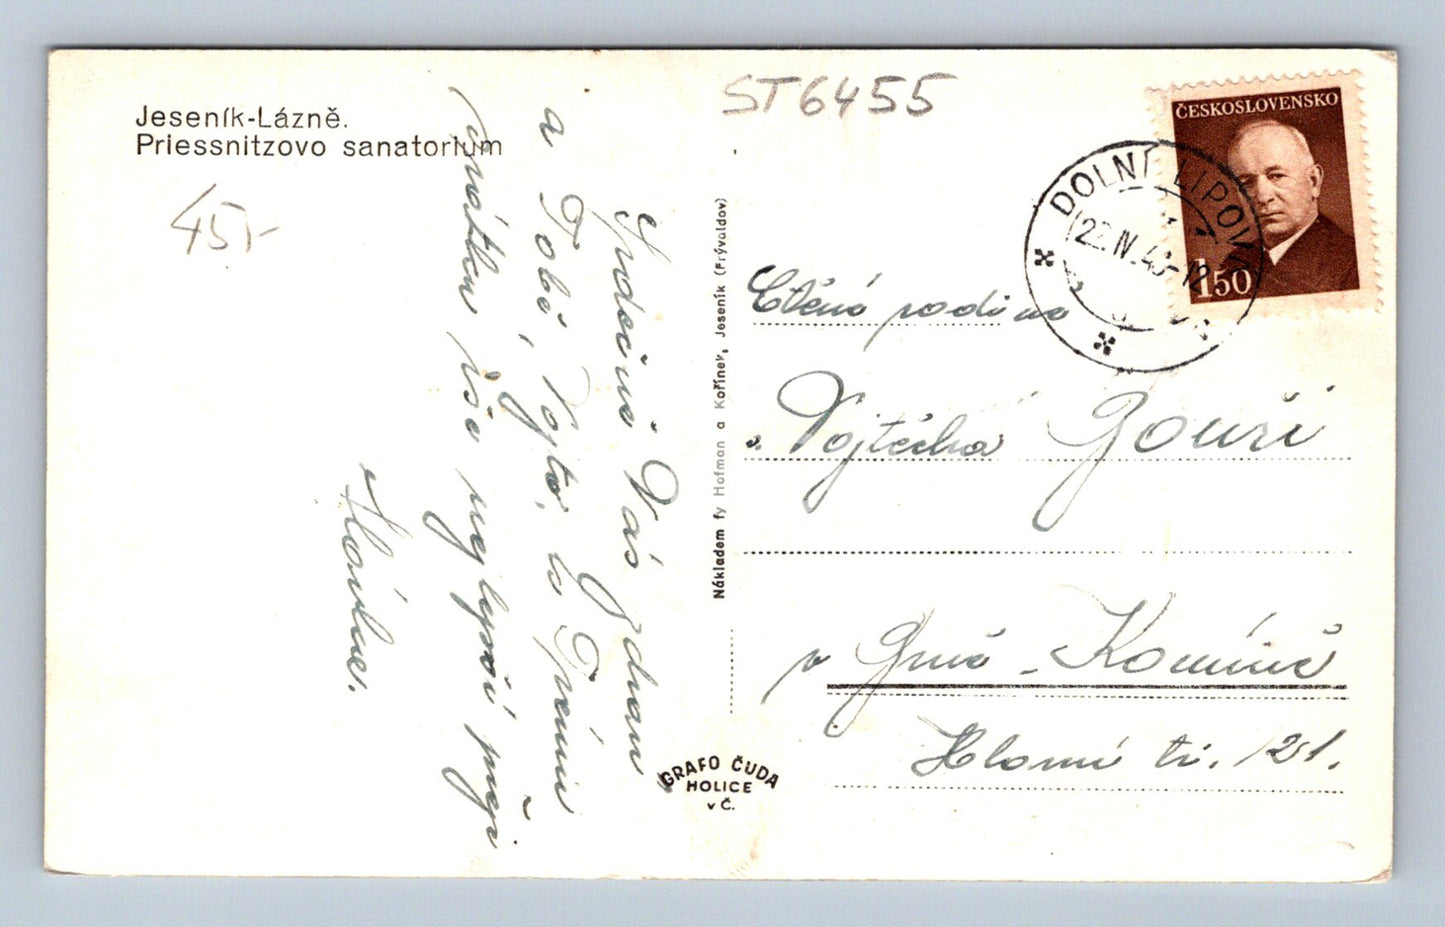 Jeseník-Lázně.
Priessnitzovo sanatorium
ST6455
45,-
Srdečně Vás zdraví
a Tobě, Vojto,
svátku vše nejlepší přeje
Nákladem fy Hofman a Kořínek, Jeseník (Frývaldov)
GRAFO ČUDA
HOLICE
v Č.
ČESKOSLOVENSKO
1.50
DOLNÍ LIPOVÁ
22.IV.48-12
Ctěná rodina
p. Vojtěcha
v Brně - Komíně
Hlavní tř. 121.